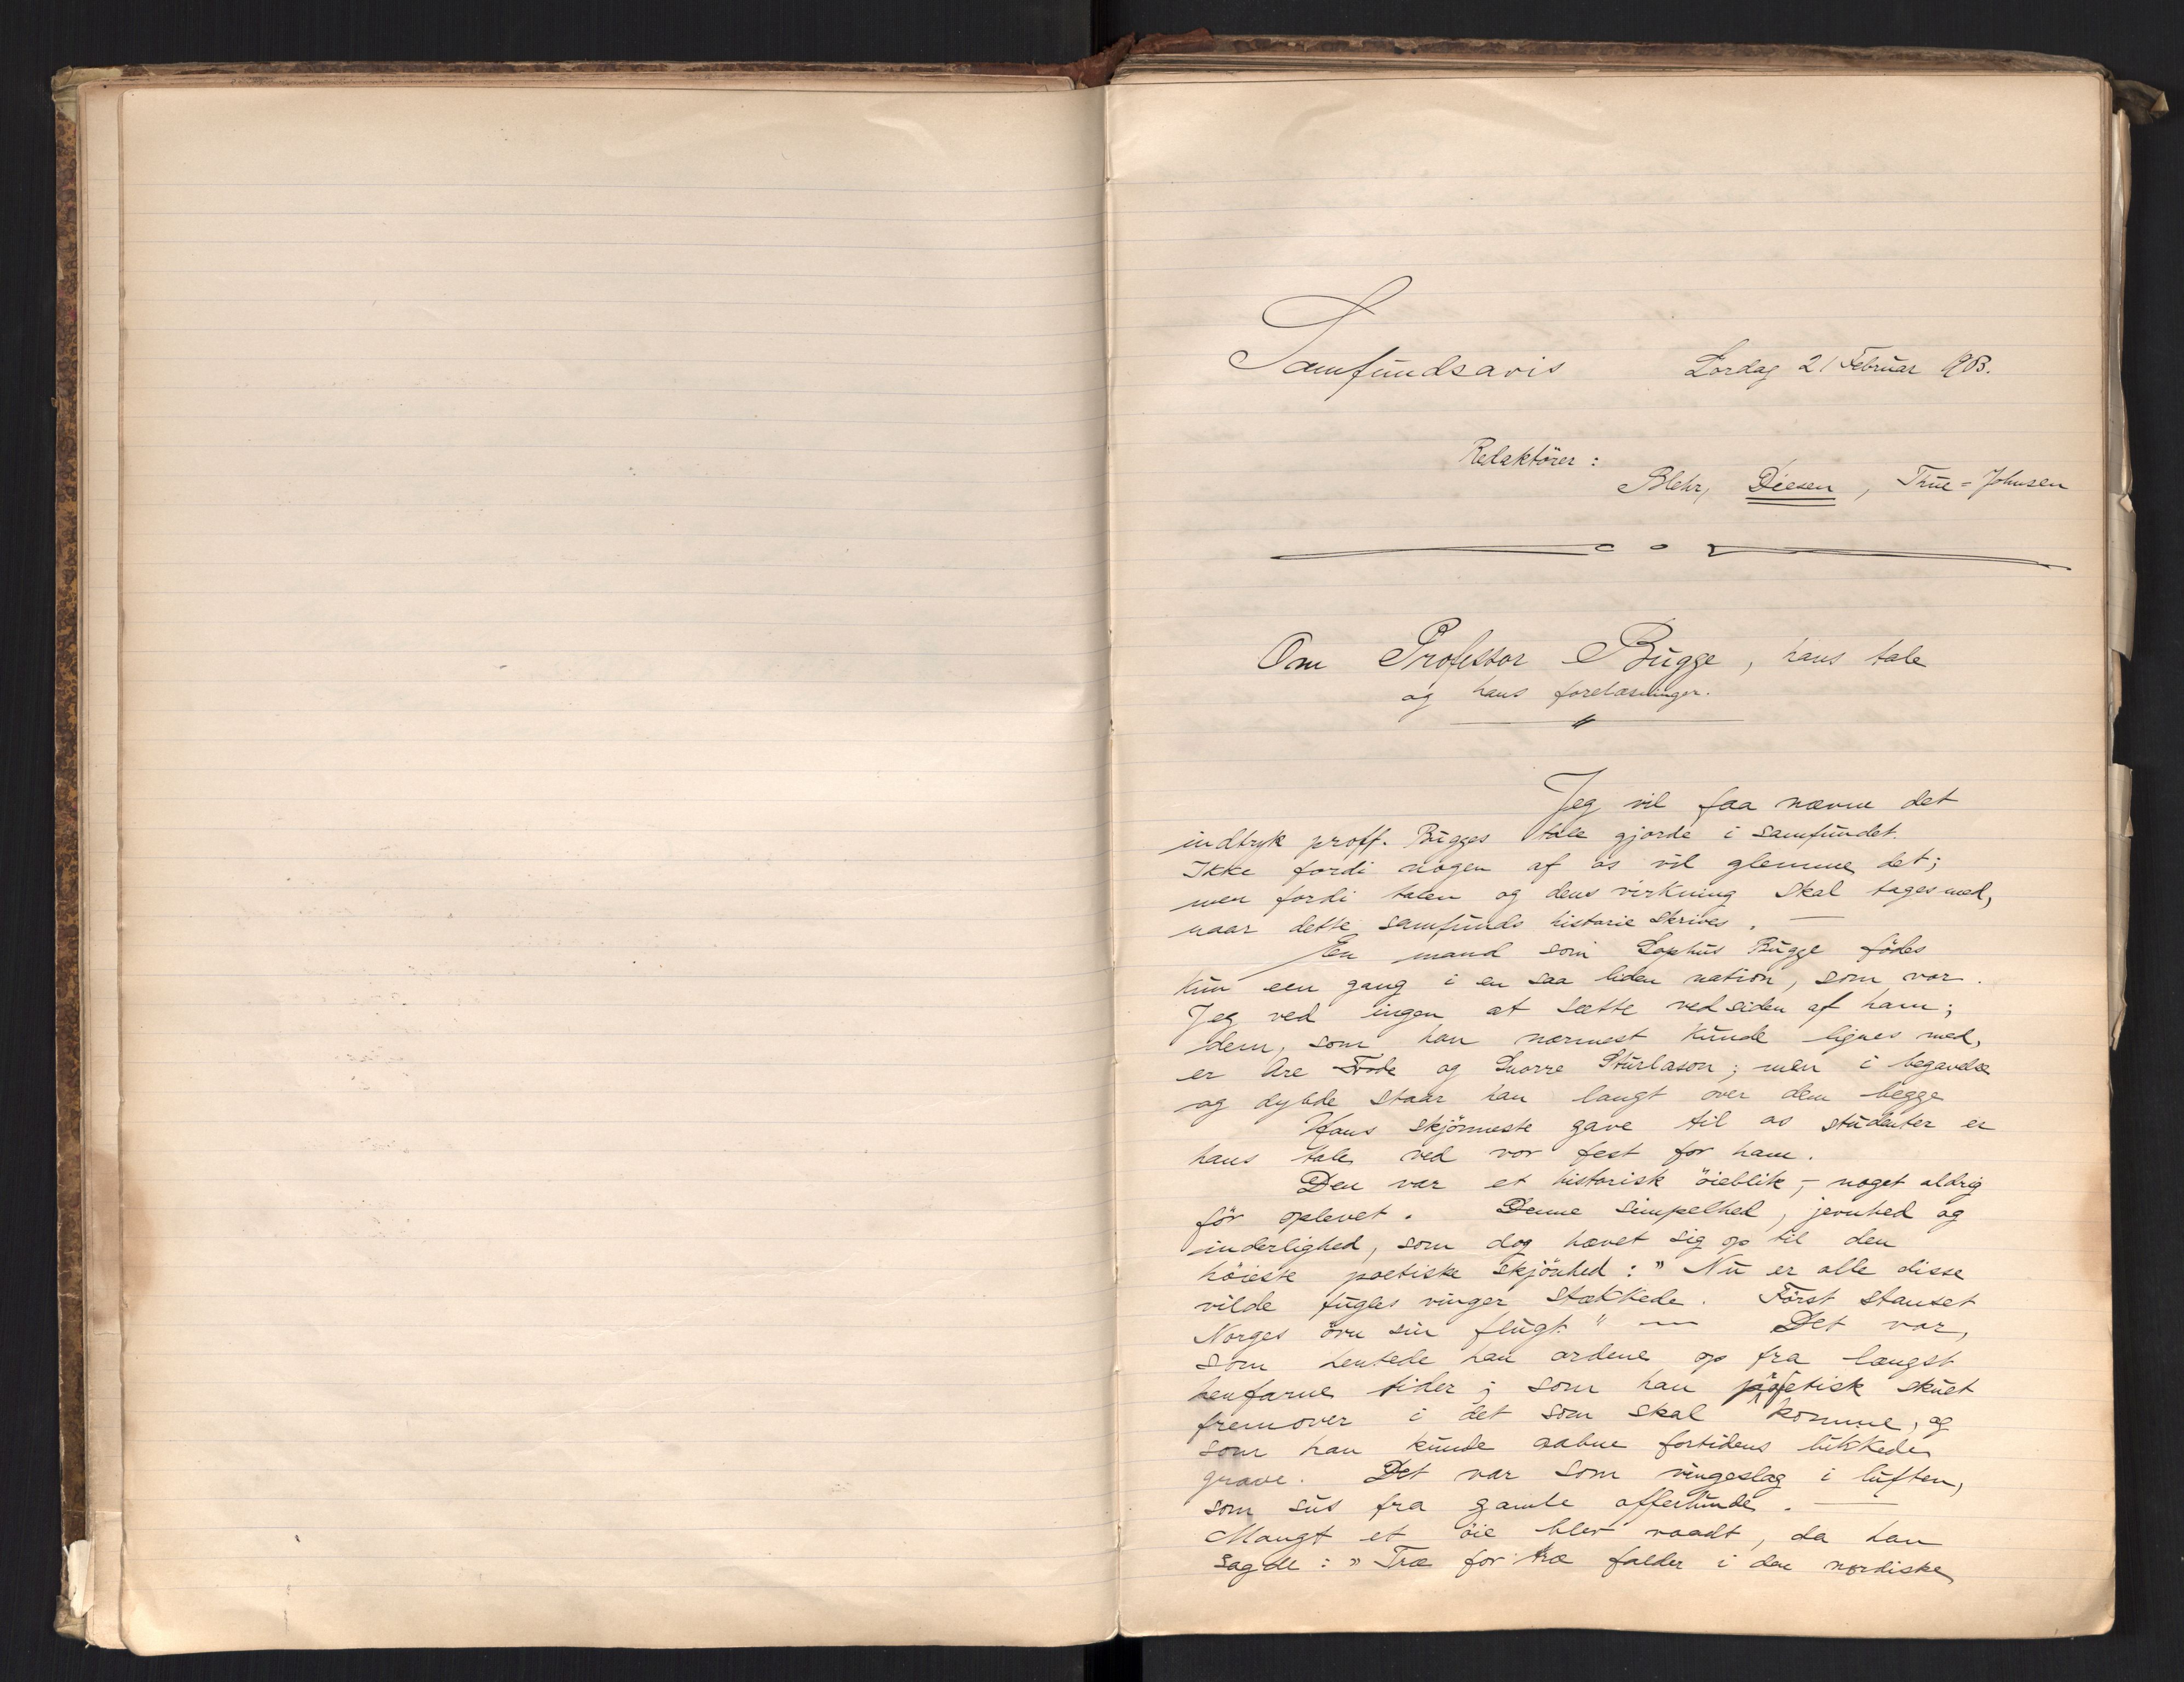 Samfundsavis Lördag 21 Februar 1903.
Redaktörer:
Blehr, Diesen, Thue-Johnsen
Om Professor Bugge, hans tale
og hans forelæsninger.
Jeg vil faa nævne det
indtryk proff. Bugges tale gjorde i samfundet.
Ikke fordi nogen af os vil glemme det;
men fordi talen og dens virkning skal tages med,
naar dette samfunds historie skrives. —
En mand som Sophus Bugge födes
kun een gang i en saa liden nation, som vor.
Jeg ved ingen at sætte ved siden af ham;
dem, som han nærmest kunde lignes med,
er Are Frode og Snorre Sturlason; men i begavelse
og dybde staar han langt over dem begge
Hans skjönneste gave til os studenter er
hans tale ved vor fest for ham.
Den var et historisk öieblik, – noget aldrig
för oplevet. Denne simpelhed, jevnhed og
inderlighed, som dog hævet sig op til den
höieste poetiske skjönhed: "Nu er alle disse
vilde fugles vinger stækkede. Först stanset
Norges örn sin flugt." — Det var,
som hentede han ordene op fra længst
henfarne tider; som han skuet
fremover i det som skal komme, og
som han kunde aabne fortidens lukkede
grave. Det var som vingeslag i luften,
som sus fra gamle offerlunde. —
Mangt et öie blev vaadt, da han
sagde: "Træ for træ falder i den nordiske